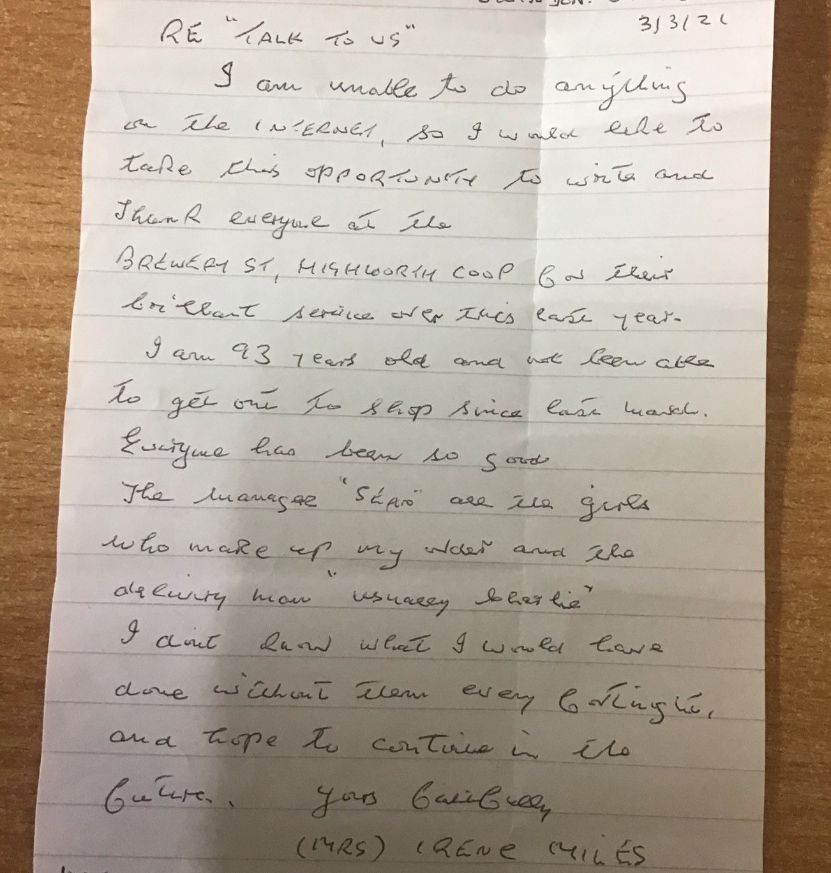 3/3/21
RE "TALK TO US"
I am unable to do anything
on the INTERNET, so I would like to
take this OPPORTUNITY to write and
Thank everyone at the
BREWERY ST, HIGHWORTH COOP for their
brilliant service over this last year.
I am 93 years old and not been able
to get out to shop since last March.
Everyone has been so good
The manager all the girls
who make up my order and the
delivery man "usually Charlie"
I dont know what I would have
done without them every fortnight,
and hope to continue in the
future. Yours faithfully
(MRS) IRENE MILES